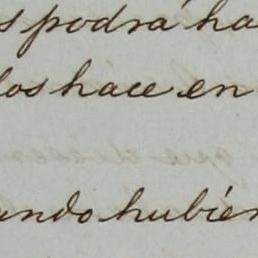 s podrá ha
los hace en
ando hubier